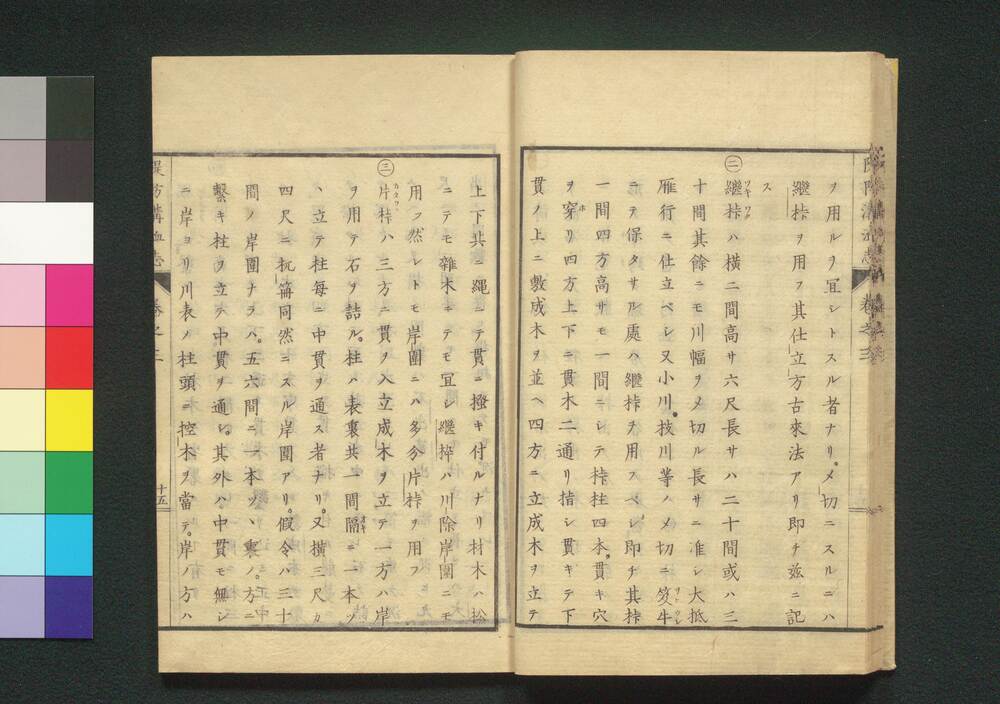 ヲ用ルヲ冝シトスル者ナリ。メ切ニスルニハ
繼桙ヲ用フ其仕立方古來法アリ即チ玆ニ記
ス
㊁繼桙ハ横二間高サ六尺長サハ二十間或ハ三
十間其餘ニモ川幅ヲメ切ル長サニ准シ大抵
雁行ニ仕立ベシ又小川。技川等ノメ切ニ笈牛
ニテ保タサル處ハ繼桙ヲ用スベシ即チ其桙
一間四方高サモ一間ニシテ桙柱四本。貫キ穴
ヲ穿リ四方上下ニ貫木二通リ指シ貫キテ下
貫ノ上ニ敷成木ヲ並ヘ四方ニ立成木ヲ立テ
上下共ニ繩ニテ貫ニ搔キ付ルナリ材木ハ松
ニテモ雜木ニテモ冝シ繼桙ハ川除岸圍ニモ
用フ然レトモ岸圍ニハ多分片桙ヲ用フ
㊂片桙ハ三方ニ貫ヲ入立成木ヲ立テ一方ハ岸
ヲ用テ石ヲ詰ル。柱ハ表裏共一間隔ニ一本ヅ
ヽ立テ柱每ニ中貫ヲ通ス者ナリ。又横三尺カ
四尺ニ杭笧同然ニスル岸圍アリ。假令ハ三十
間ノ岸圍ナラハ。五六間ニ一本ツヽ裏ノ。方ニ
繫キ柱ヲ立テ中貫ヲ通シ。其外ハ中貫モ無シ
ニ岸ヨリ川表ノ柱頭ニ控木ヲ當テ。岸ノ方ハ
卷之三
十五